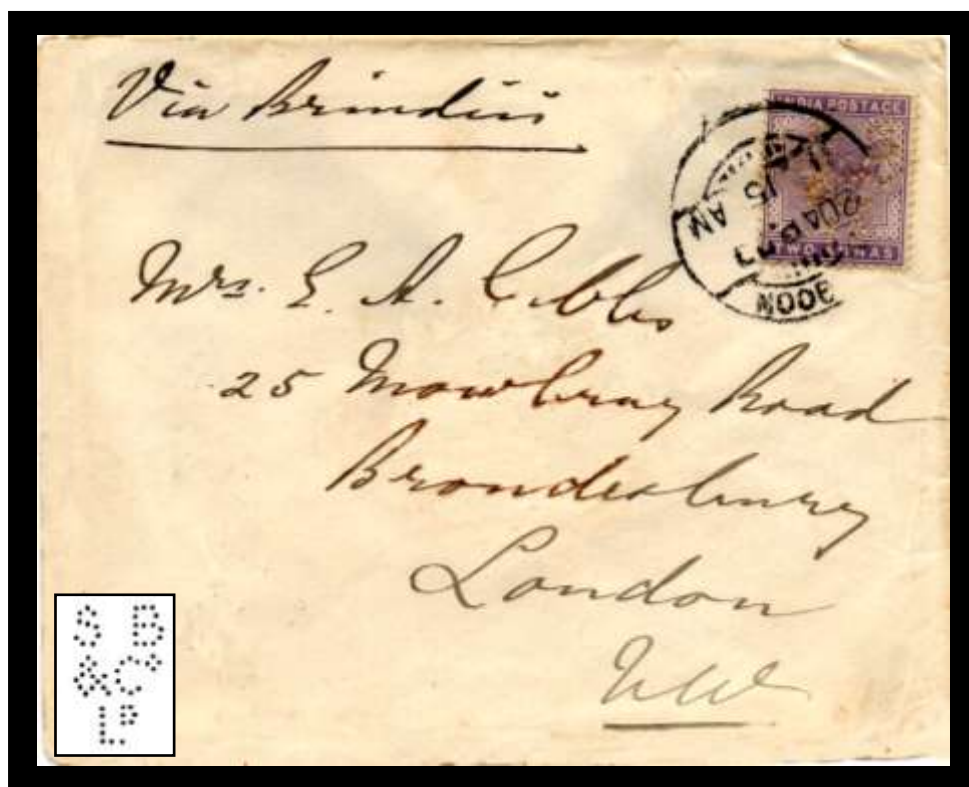 Via Brindisi
INDIA POSTAGE
TWO ANNAS
Mrs. E. A. Gibbs
25 Mowbray Road
Brondesbury
London
NW
S B
&Co
LD